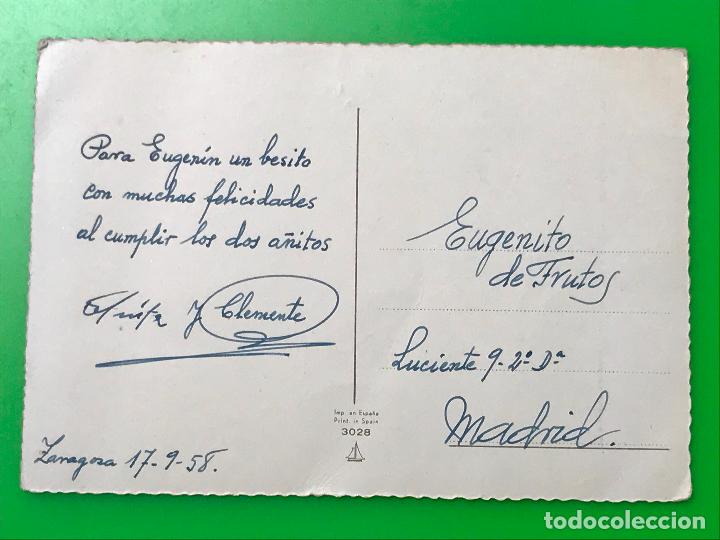 Para Eugenín un besito
con muchas felicidades
al cumplir los dos añitos
y Clemente
Zaragoza 17-9-58.
Imp. en España
Print. in Spain
3028
Eugenito
de Frutos
Luciente 9-2º Dª
Madrid.
todocoleccion